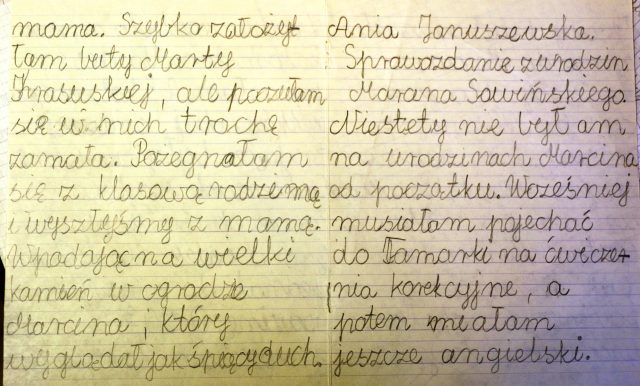 mama. Szybko założy-
łam buty Marty
Krasuskiej, ale poczułam
się w nich trochę
zamała. Pożegnałam
się z klasową rodziną
i wyszłyśmy z mamą.
Wpadając na wielki
kamień w ogrodzie
Marcina, który
wyglądał jak śpiący duch.
Ania Januszewska.
Sprawozdanie z urodzin
Marcina Sawińskiego
Niestety nie był am
na urodzinach Marcina
od początku. Wcześniej
musiałam pojechać
do Tamarki na ćwicze-
nia korekcyjne, a
potem miałam
jeszcze angielski.